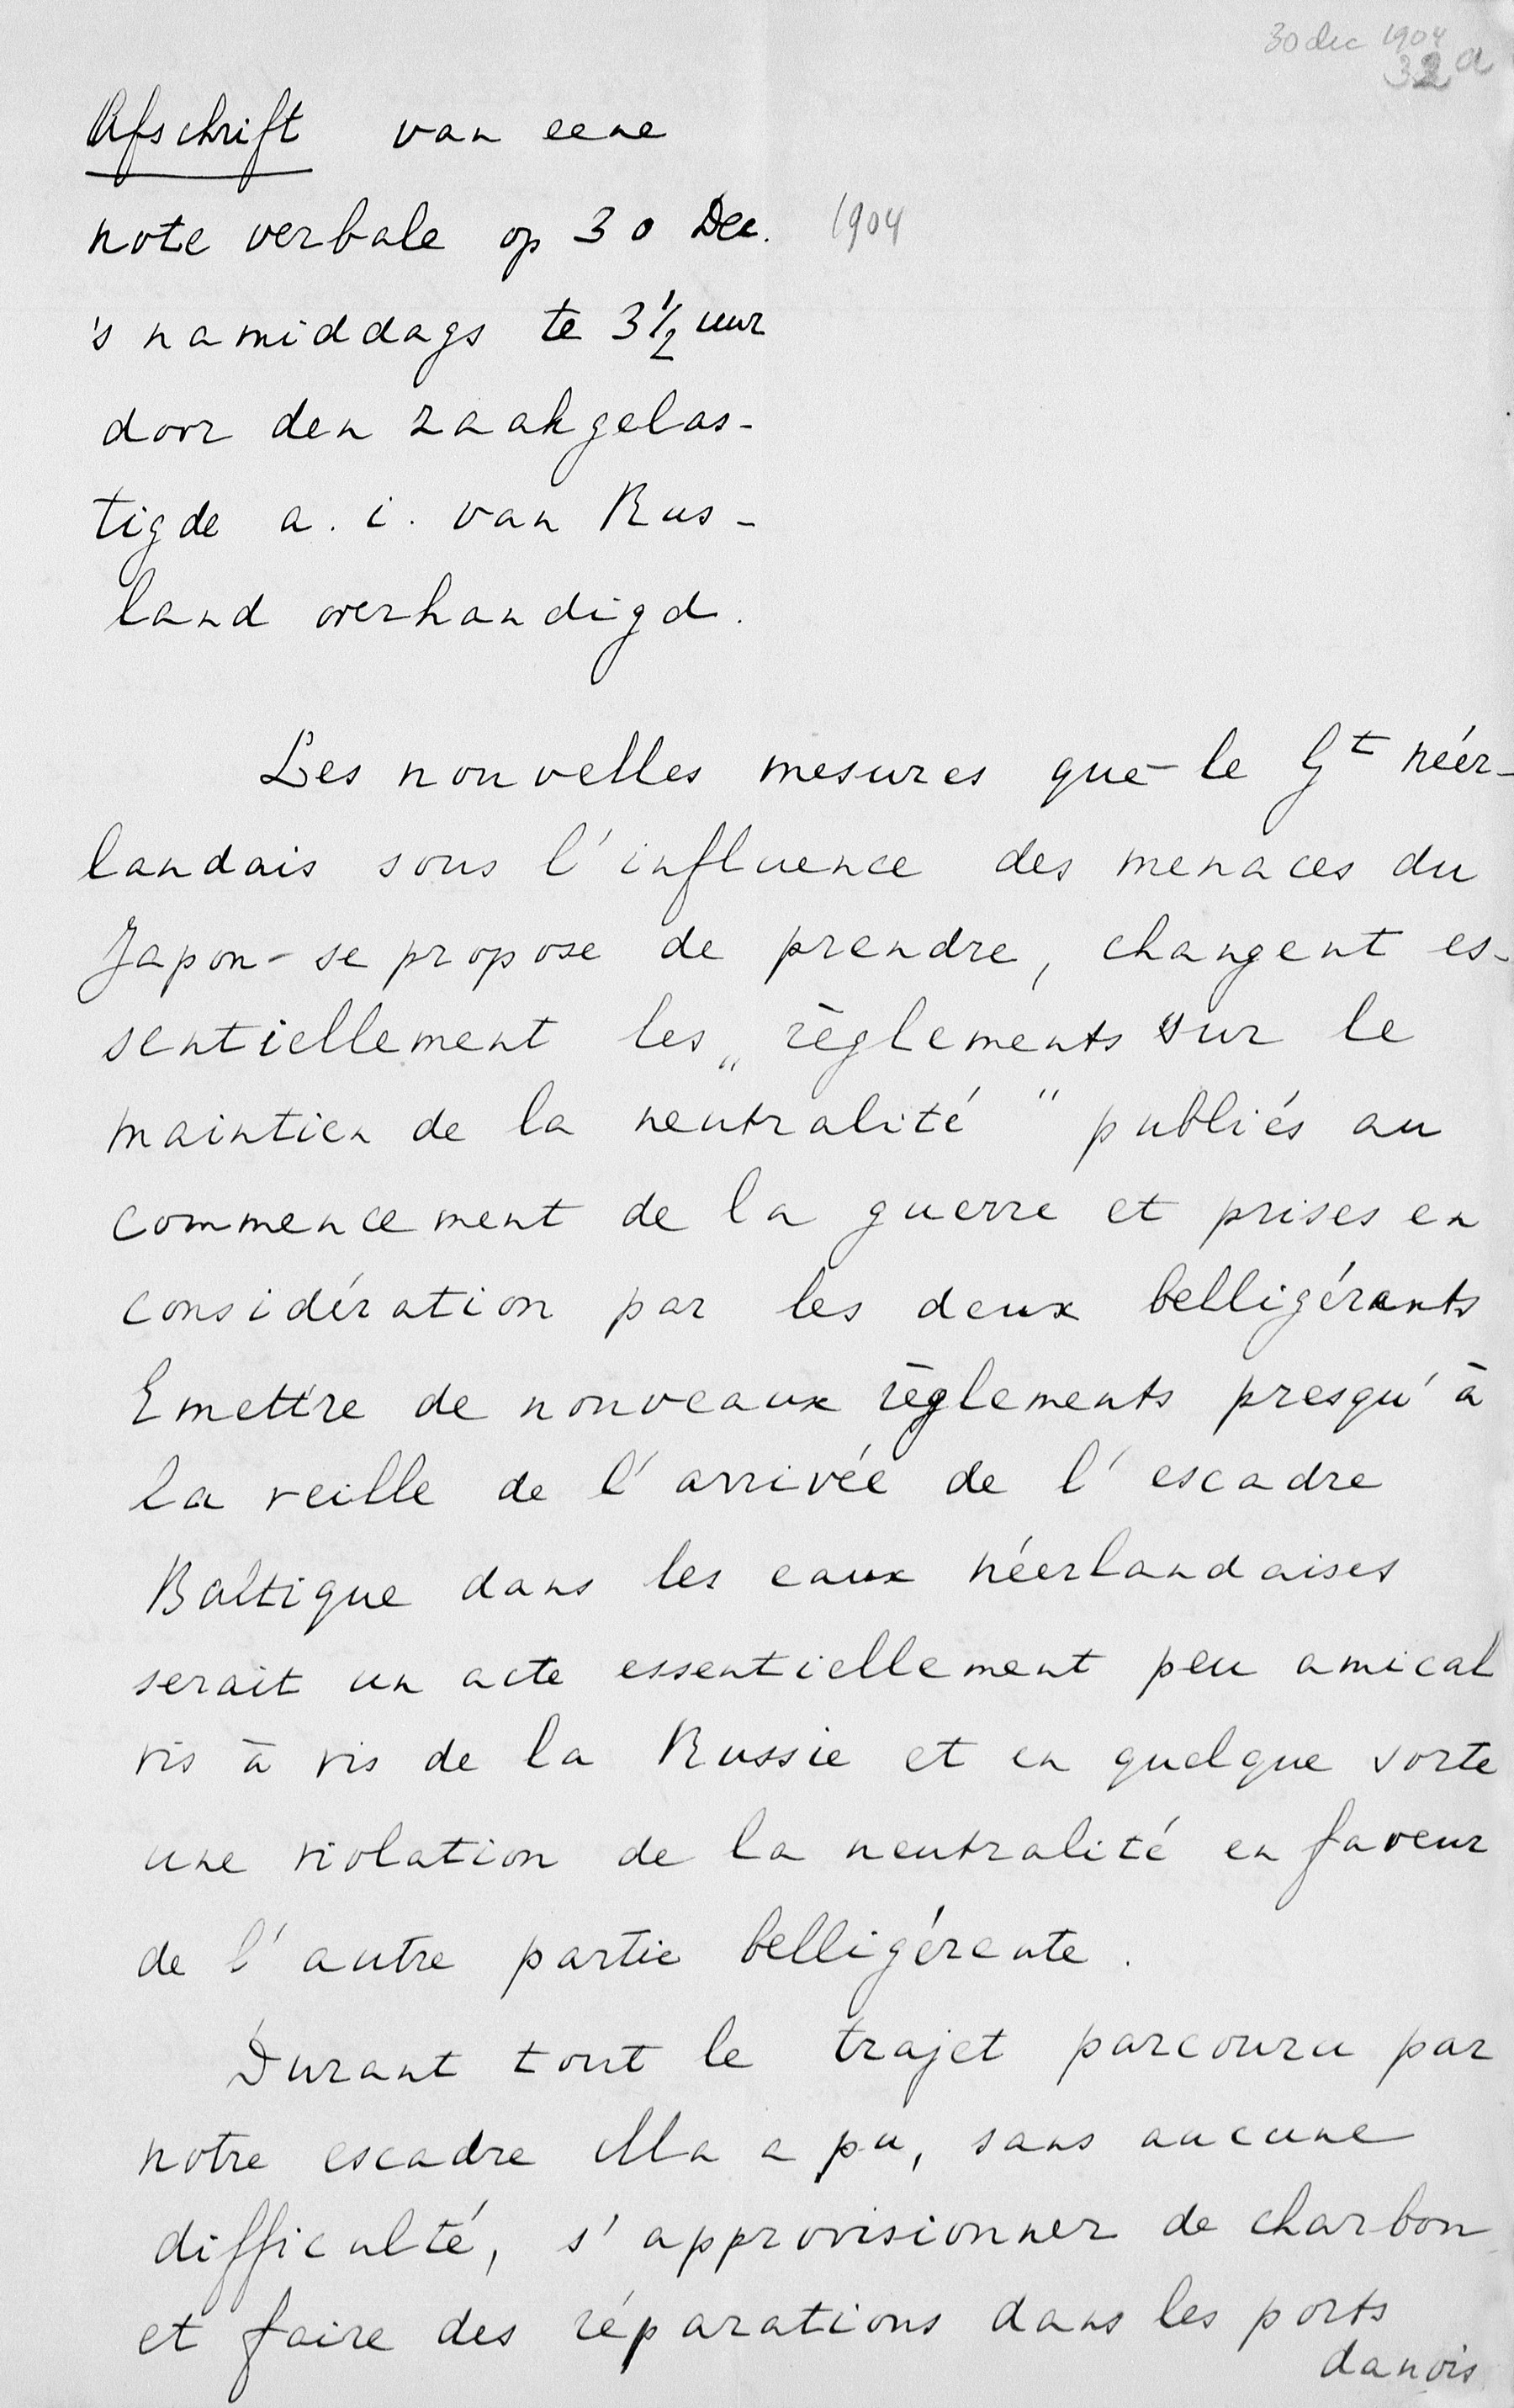 30 dec 1904
32a
Afschrift van eene
note verbale op 30 Dec. 1904
's namiddags te 3½ uur
door den zaakgelas-
tigde a. i. van Rus-
land overhandigd.
Les nouvelles mesures que - le Gt néer-
landais sous l'influence des menaces du
Japon - se propose de prendre, changent es-
sentiellement les „règlements sur le
maintien de la neutralité" publiés au
commencement de la guerre et prises en
considération par les deux belligérants
Emettre de nouveaux règlements presqu'à
la veille de l'arrivée de l'escadre
Baltique dans les eaux néerlandaises
serait un acte essentiellement peu amical
vis à vis de la Russie et en quelque sorte
une violation de la neutralité en faveur
de l'autre partie belligérente.
Durant tout le trajet parcouru par
notre escadre elle a pu, sans aucune
difficulté, s'approvisionner de charbon
et faire des réparations dans les ports
danois